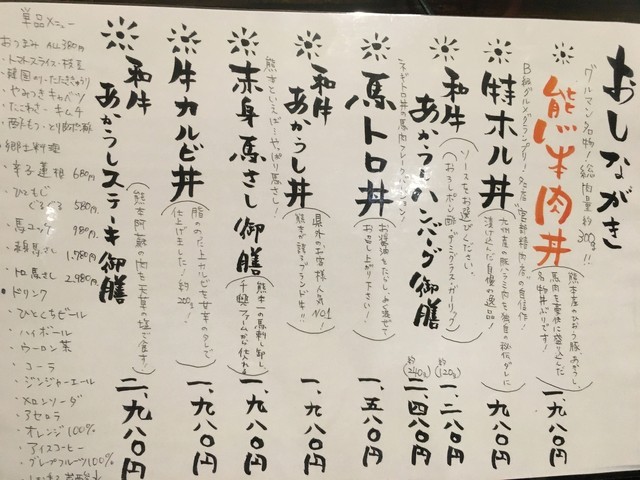 おしながき
グルマン名物!総肉量約300g!!
熊本肉丼
熊本産のひおう豚、あかうし、
馬肉を豪快に盛り込んだ
名物丼ぶりです!
一、九八〇円
B級グルメグランプリ
特ホル丼
漬け込んだ自慢の逸品!
九八〇円
和牛
あかうしハンバーグ御膳
ソースをお選びください。
(おろしポン酢・デミグラス・ガーリック)
約(120g)
一、二八〇円
約(240g)
二、四八〇円
馬トロ丼
ネギトロ丼の馬肉フレークバージョン!
お醤油をたらし、よく混ぜて
お召し上がり下さい!
一、五八〇円
和牛
あかうし丼
県外のお客様人気NO1!
熊本が誇るブランド牛!!
一、九八〇円
赤身馬さし御膳
熊本といえば…やっぱり馬さし!
熊本一の馬刺し卸し、
千興ファームから仕入れ
一、九八〇円
牛カルビ丼
脂ののった上カルビを甘辛のタレで
仕上げました!約200g!
一、九八〇円
和牛
あかうしステーキ御膳
熊本阿蘇の肉を天草の塩で食す!
二、九八〇円
単品メニュー
おつまみ ALL380円
・トマトスライス・枝豆
・韓国のりたたききゅうり
・やみつきキャベツ
・たこわさ・キムチ
・酢もつ・とり皮ポン酢
郷土料理
・辛子蓮根 680円
・ひともじぐるぐる 580円
・馬コロッケ 980円
・赤身馬さし 1,780円
・上馬さし 2,980円
・ドリンク
・ひとくちビール
・ハイボール
・ウーロン茶
・コーラ
・ジンジャーエール
・メロンソーダ
・アセロラ
・オレンジ100%
・アイスコーヒー
・グレープフルーツ100%